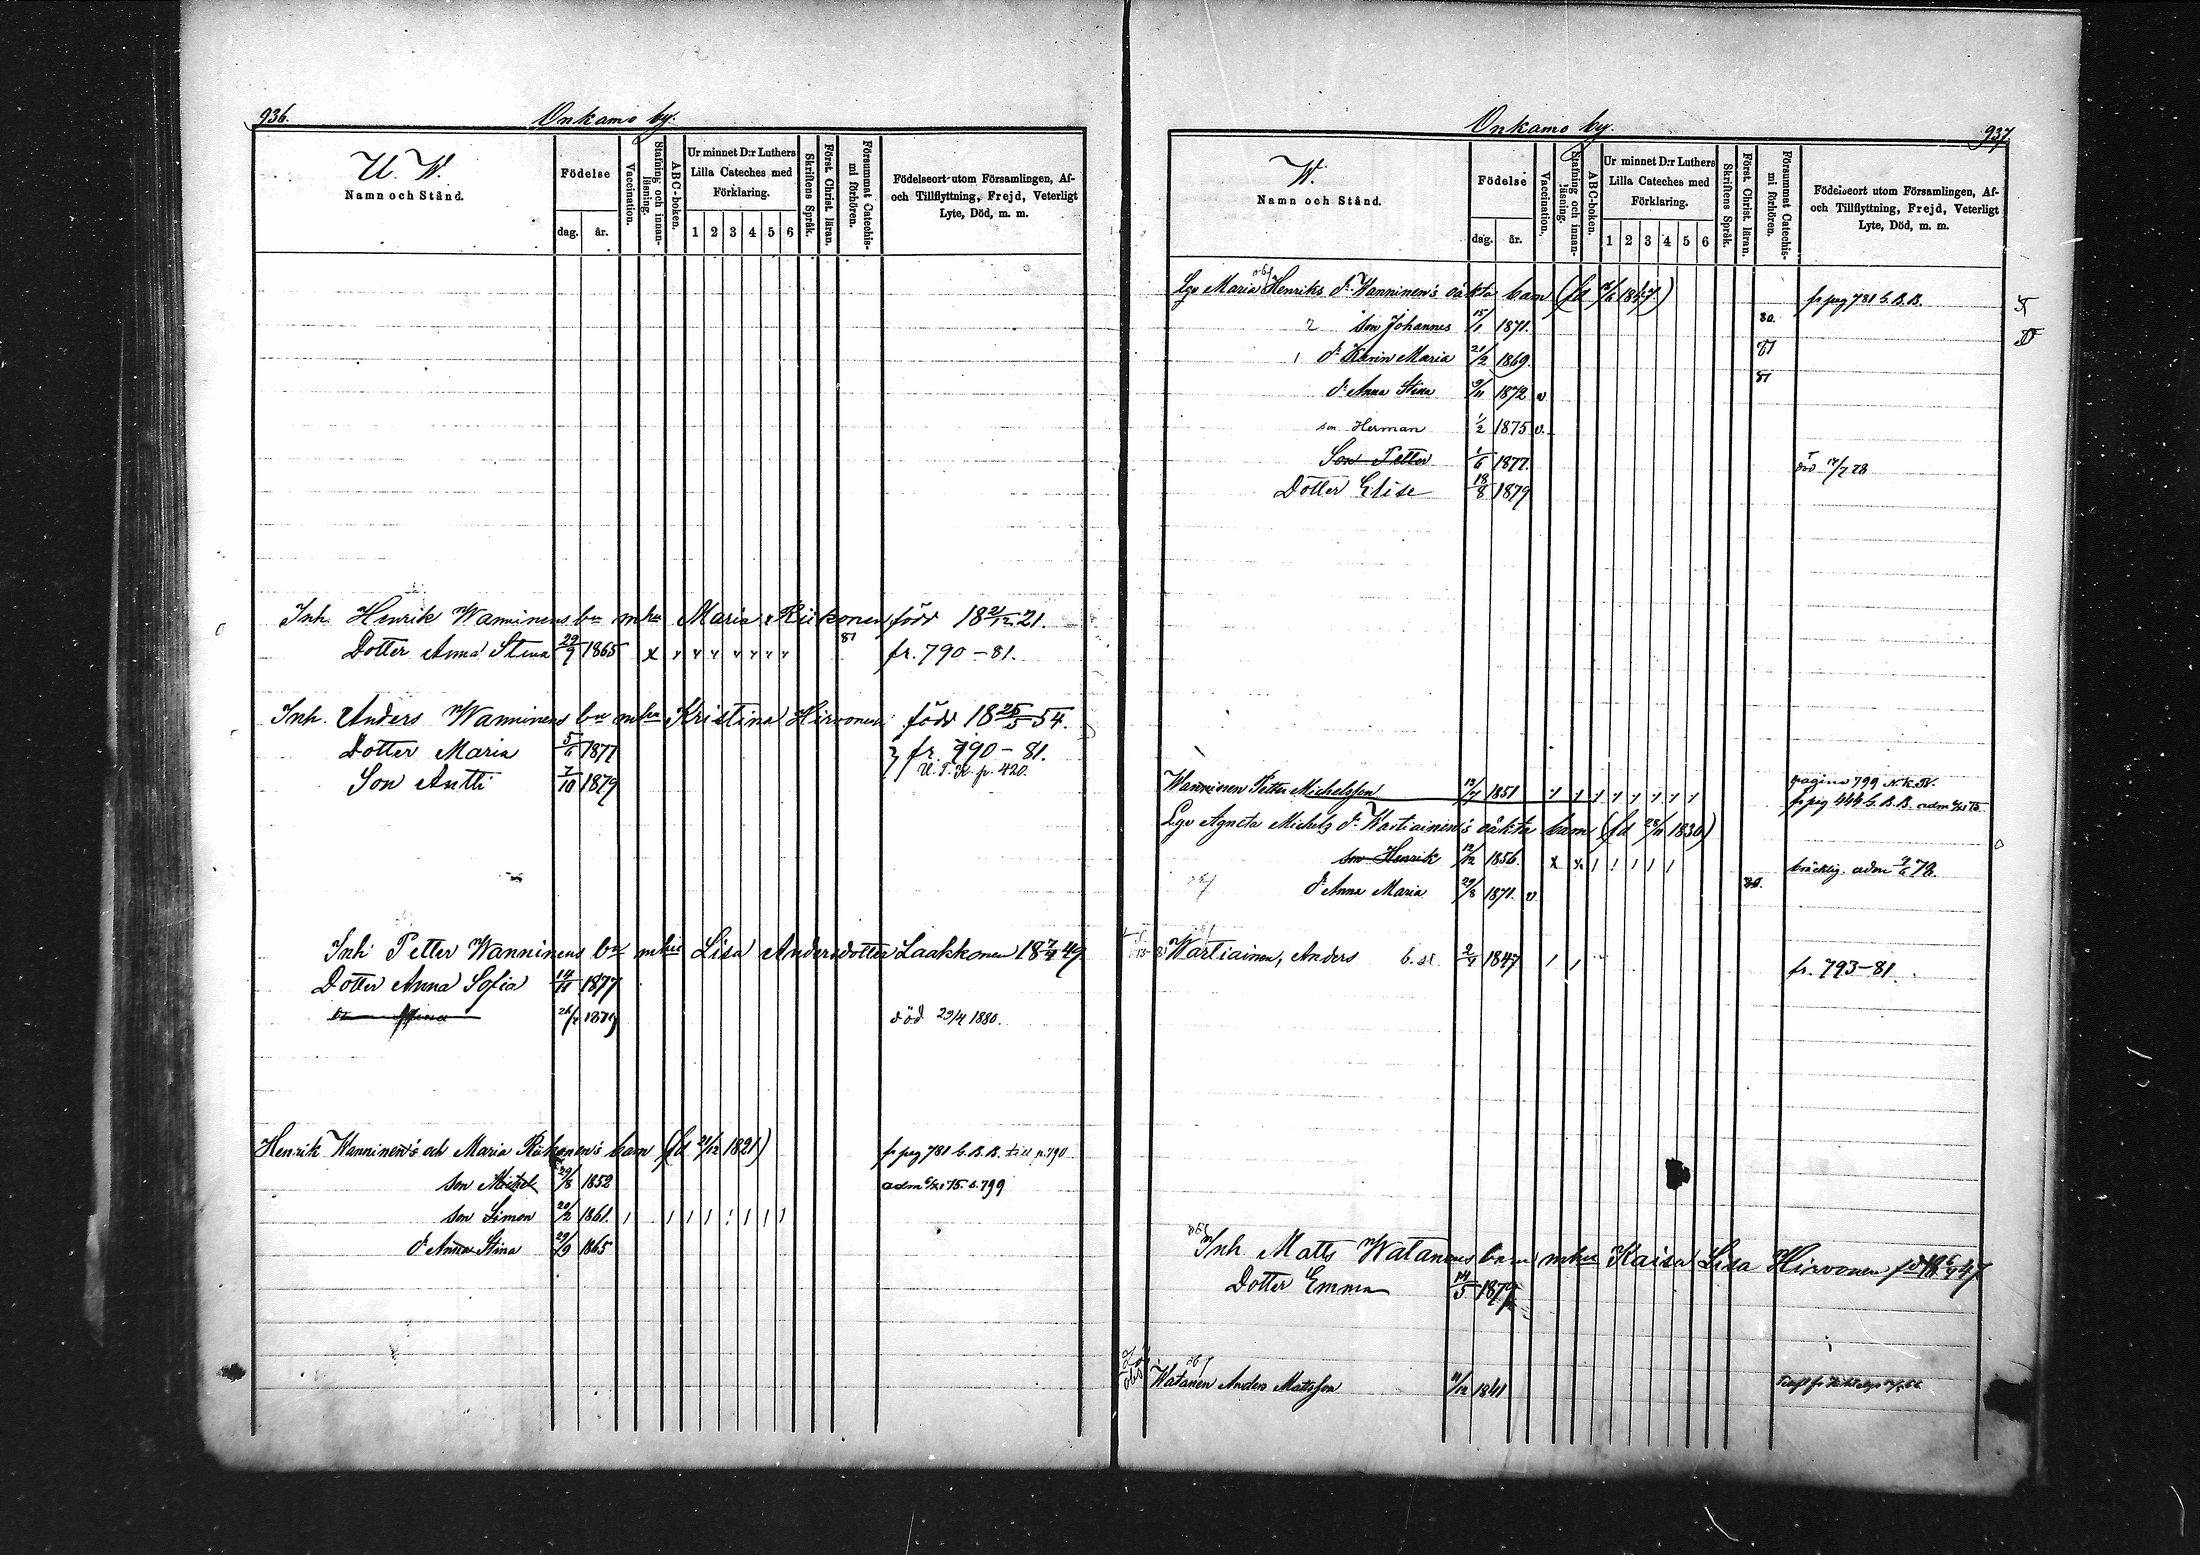 936.
Onkamo by.
U. W.
Namn och Stånd.
Födelse
dag. år.
Vaccination.
Stafning och innanläsning.
ABC-boken.
Ur minnet D:r Luthers Lilla Cateches med Förklaring.
1 2 3 4 5 6
Skriftens Språk.
Först. Christ. läran.
Försummat Catechismi förhören.
Födelseort utom Församlingen, Af- och Tillflyttning, Frejd, Veterligt Lyte, Död, m. m.
Inh. Henrik Wanninens bn mhu Maria Riikonen född 18 21/12 21.
Dotter Anna Stina 29/9 1865 81 fr. 790 - 81.
Inh. Anders Wanninens bn mhu Kristina Hirvonen född 18 25/5 54.
Dotter Maria 5/6 1877 fr. 790 - 81.
Son Antti 7/10 1879 U. T. K. p. 420.
Inh Petter Wanninens bn mhu Lisa Andersdotter Laakkonen 18 7/4 49
Dotter Anna Sofia 14/11 1877
Stina 1879 död 29/4 1880.
Henrik Wanninen's och Maria Riikonen's barn (fd 21/12 1821) fr pag 781 b. B. B. till p. 790
son Michel 29/8 1852 adm 75. s. 799
son Simon 20/2 1861.
d. Anna Stina 29/9 1865
Onkamo by.
937.
W.
Namn och Stånd.
Födelse
dag. år.
Vaccination.
Stafning och innanläsning.
ABC-boken.
Ur minnet D:r Luthers Lilla Cateches med Förklaring.
1 2 3 4 5 6
Skriftens Språk.
Först. Christ. läran.
Försummat Catechismi förhören.
Födelseort utom Församlingen, Af- och Tillflyttning, Frejd, Veterligt Lyte, Död, m. m.
Lgo Maria Henriks d. Wanninen's oäkta barn fr pag 781 b. B. B.
2 son Johannes 15/1 1871. 80.
1 d. Karin Maria 21/2 1869.
d. Anna Stina 9/11 1872 v 81
son Herman 1/2 1875 v.
Son Petter 1/6 1877. död 17/7 78
Dotter Elise 18/8 1879
Wanninen Petter Michelsson 1851 pagina 799 N. K. B.
fr pag 444 b. B. B. adm 75
Lgo Agneta Michels d. Wartiainen's oäkta barn (fd 28/11 1830)
son Henrik 12/12 1856. bräcklig. adm 78.
d. Anna Maria 29/8 1871. v 80.
Wartiainen, Anders b. sl. 2/4 1847 fr. 793-81.
obs
Inh Matts Watanens barn mhu Kaisa Lisa Hirvonen 47
Dotter Emma 14/5 1879
obs
Watanen Anders Mattsson 11/12 1841